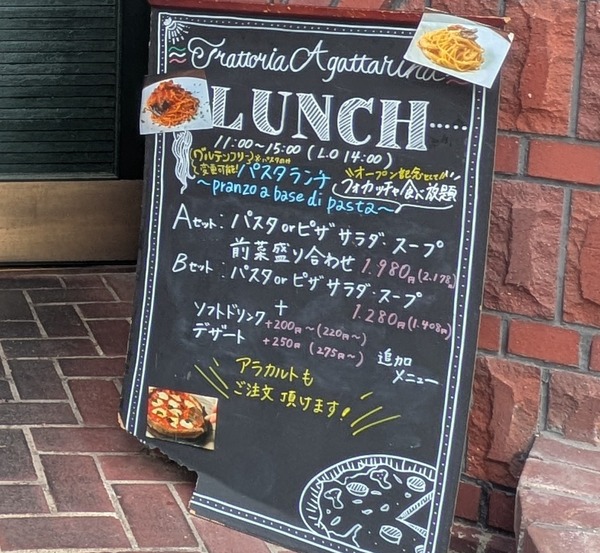 Trattoria Agattarina
LUNCH
11:00〜15:00 (L.O 14:00)
グルテンフリー
変更可能!
パスタランチ
オープン記念として
フォカッチャ食べ放題
〜pranzo a base di pasta〜
Aセット: パスタ or ピザ サラダ・スープ
前菜盛り合わせ 1.980円(2.178)
Bセット: パスタ or ピザ サラダ・スープ
+ 1.280円(1.408円)
ソフトドリンク +200円〜(220円〜)
デザート +250円(275円〜)
追加
メニュー
アラカルトも
ご注文頂けます!